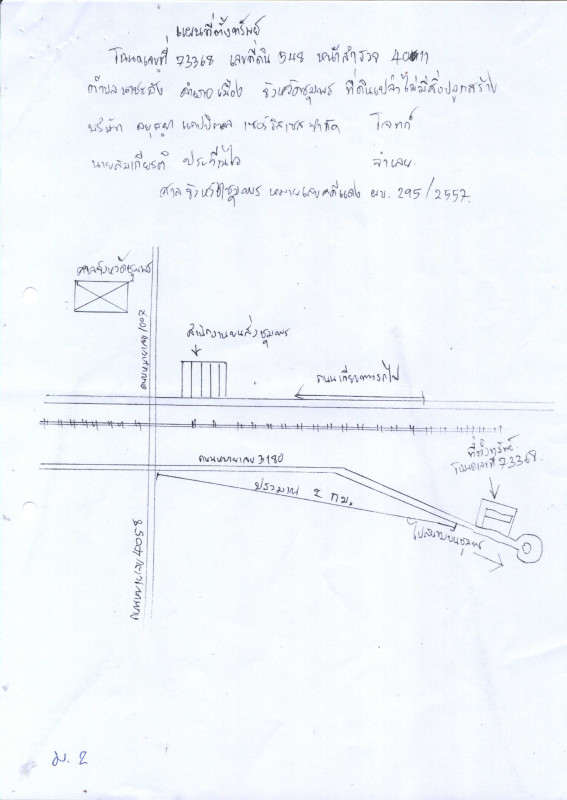 แผนที่ตั้งทรัพย์
โฉนดเลขที่ 73368 เลขที่ดิน 548 หน้าสำรวจ 4011
ตำบล นาชะอัง อำเภอ เมือง จังหวัดชุมพร ที่ดินเปล่าไม่มีสิ่งปลูกสร้าง
บริษัท อยุธยา แคปปิตอล เซอร์วิสเซส จำกัด โจทก์
นายสมเกียรติ จำเลย
ศาลจังหวัดชุมพร หมายเลขคดีแดง ผบ. 295/2557
ศาลจังหวัดชุมพร
สำนักงานขนส่งชุมพร
ถนนเลียบทางรถไฟ
ที่ตั้งทรัพย์
โฉนดเลขที่ 73368
ถนนหมายเลข 3180
ประมาณ 2 กม.
ไปสนามบินชุมพร
ม. 2